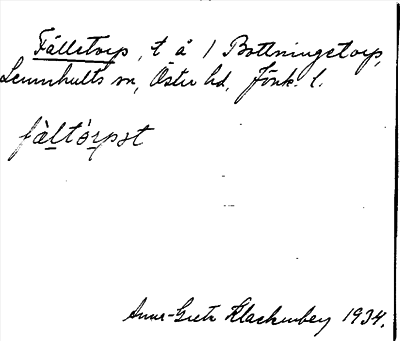 Fälletorp, t å 1 Bottningstorp,
Lemnhults sn, Östra hd, Jönk. l.
fàltórpət
Anna-Greta Klackenberg 1934.